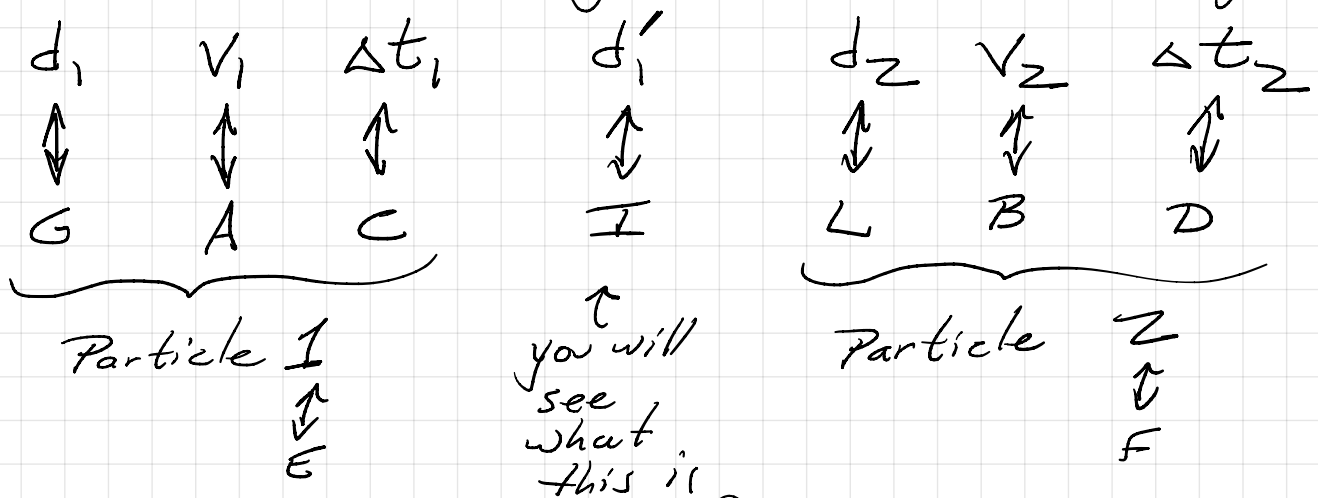 d₁ V₁ Δt₁ d₁′ d₂ V₂ Δt₂
↕ ↕ ↕ ↕ ↕ ↕ ↕
G A C I L B D
Particle 1
↕
E
↑
you will
see
what
this is
Particle 2
↕
F